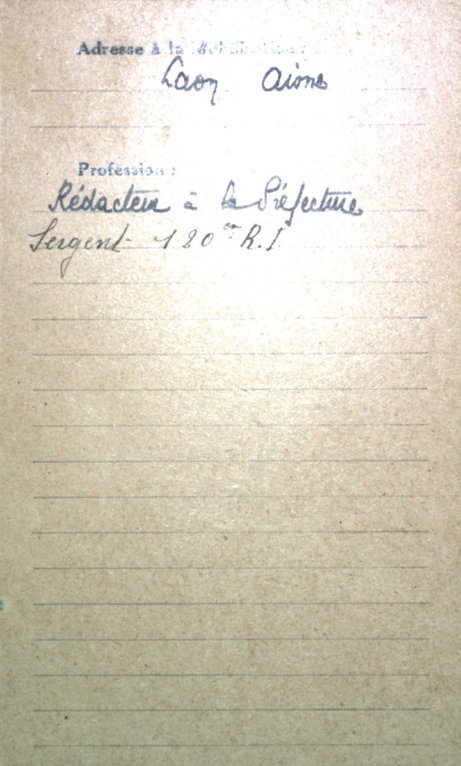 Adresse à la mobilisation :
Laon Aisne
Profession :
Rédacteur à la Préfecture
Sergent 120e R.I